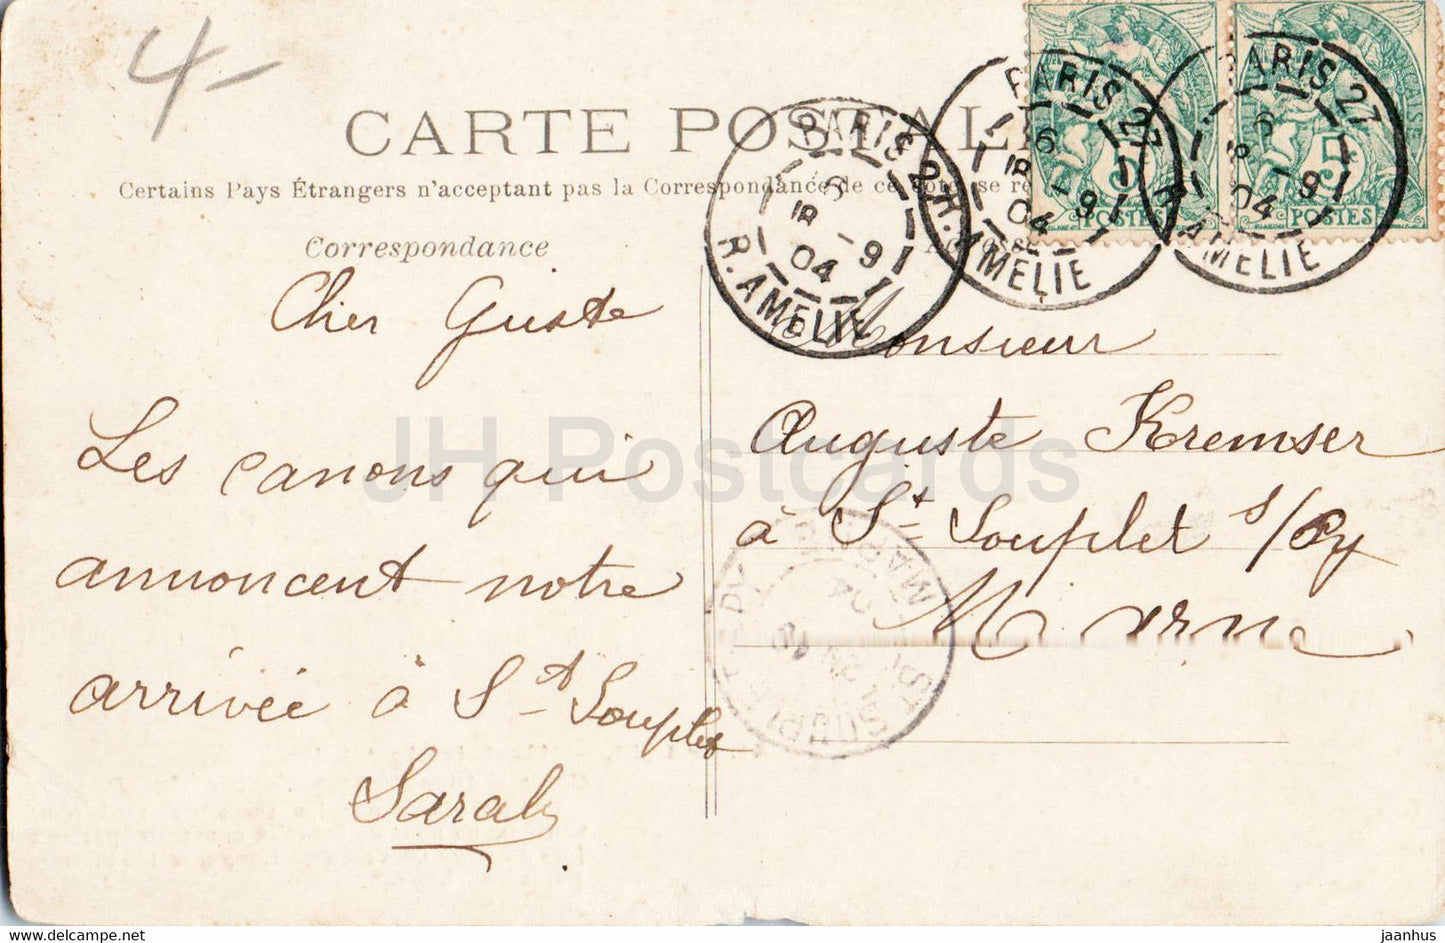 4-
CARTE POSTALE
Certains Pays Étrangers n'acceptant pas la Correspondance de ce côté, se re
Correspondance
PARIS 27
6
18 - 9
04
R. AMELIE
PARIS 27
6
18 - 9
04
R. AMELIE
PARIS 27
6
18 - 9
04
R. AMELIE
5
POSTES
5
POSTES
Cher Guste
Les canons qui
annoncent notre
arrivée à St Souplet
Sarah
Monsieur
Auguste Kremser
à St Souplet s/Py
Marne
ST SOUPLET PY
MARNE
04
JH Postcards
www.delcampe.net
jaanhus